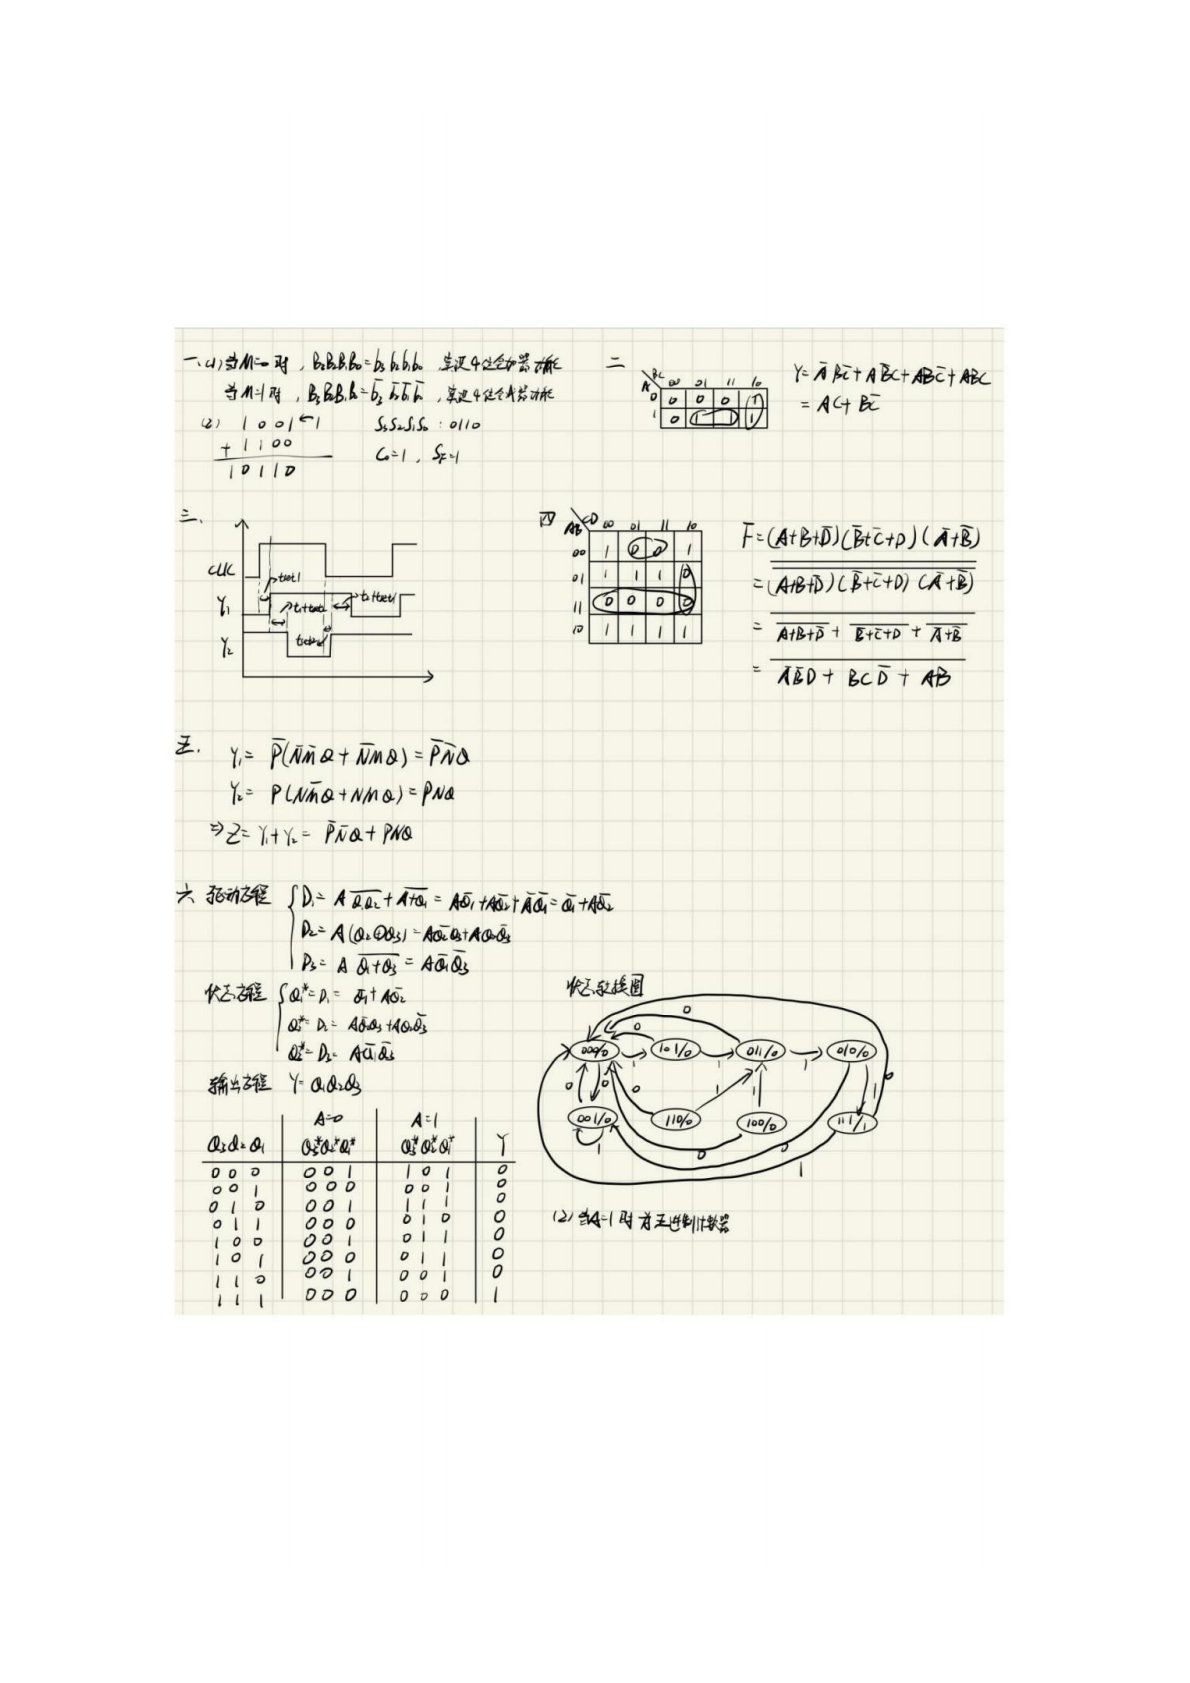 一、(1) 当M=0时，B₃B₂B₁B₀=b₃b₂b₁b₀，实现4位全加器功能
当M=1时，B₃B₂B₁B₀=b̅₃ b̅₂ b̅₁ b̅₀，实现4位全减器功能
(2) 1 0 0 1 ← 1
+ 1 1 0 0
1 0 1 1 0
S₃S₂S₁S₀ : 0110
C₀=1，
二
BC
A
00 01 11 10
0 0 0 0 1
1 0 1 1 1
Y= A̅BC̅+AB̅C+ABC̅+ABC
= AC+BC̅
三、
CLK
Y₁
Y₂
四
CD
AB
00 01 11 10
00 1 0 0 1
01 1 1 1 0
11 0 0 0 0
10 1 1 1 1
F̅=(A+B+D̅)(B̅+C̅+D)(A̅+B̅)
= (A+B+D̅)(B̅+C̅+D)(A̅+B̅)
= A+B+D̅ + B̅+C̅+D + A̅+B̅
= A̅B̅D + BCD̅ + AB
五、
Y₁= P̅(N̅M̅Q+N̅MQ)=P̅N̅Q
Y₂= P(NM̅Q+NMQ)=PNQ
⇒Z=Y₁+Y₂= P̅N̅Q+PNQ
六 驱动方程
D₁= A Q₁Q₂ + A+Q₁ = AQ̅₁+AQ̅₂+A̅Q̅₁=Q̅₁+AQ̅₂
D₂= A(Q₂⊕Q₃)=AQ̅₂Q₃+AQ₂Q̅₃
D₃= A Q₁+Q₃ = AQ̅₁Q̅₃
状态方程
Q₁*=D₁= Q̅₁+AQ̅₂
Q₂*=D₂= AQ̅₂Q₃+AQ₂Q̅₃
Q₃*=D₃= AQ̅₁Q̅₃
输出方程 Y=Q₁Q₂Q₃
A=0 A=1
Q₃Q₂Q₁ Q₃*Q₂*Q₁* Q₃*Q₂*Q₁* Y
0 0 0 0 0 1 1 0 1 0
0 0 1 0 0 0 0 0 1 0
0 1 0 0 0 1 1 1 1 0
0 1 1 0 0 0 0 1 0 0
1 0 0 0 0 1 0 1 1 0
1 0 1 0 0 0 0 1 1 0
1 1 0 0 0 1 0 0 1 0
1 1 1 0 0 0 0 0 0 1
状态转换图
000/0 101/0 011/0 010/0
001/0 110/0 100/0 111/1
(2) 当A=1时 为五进制计数器